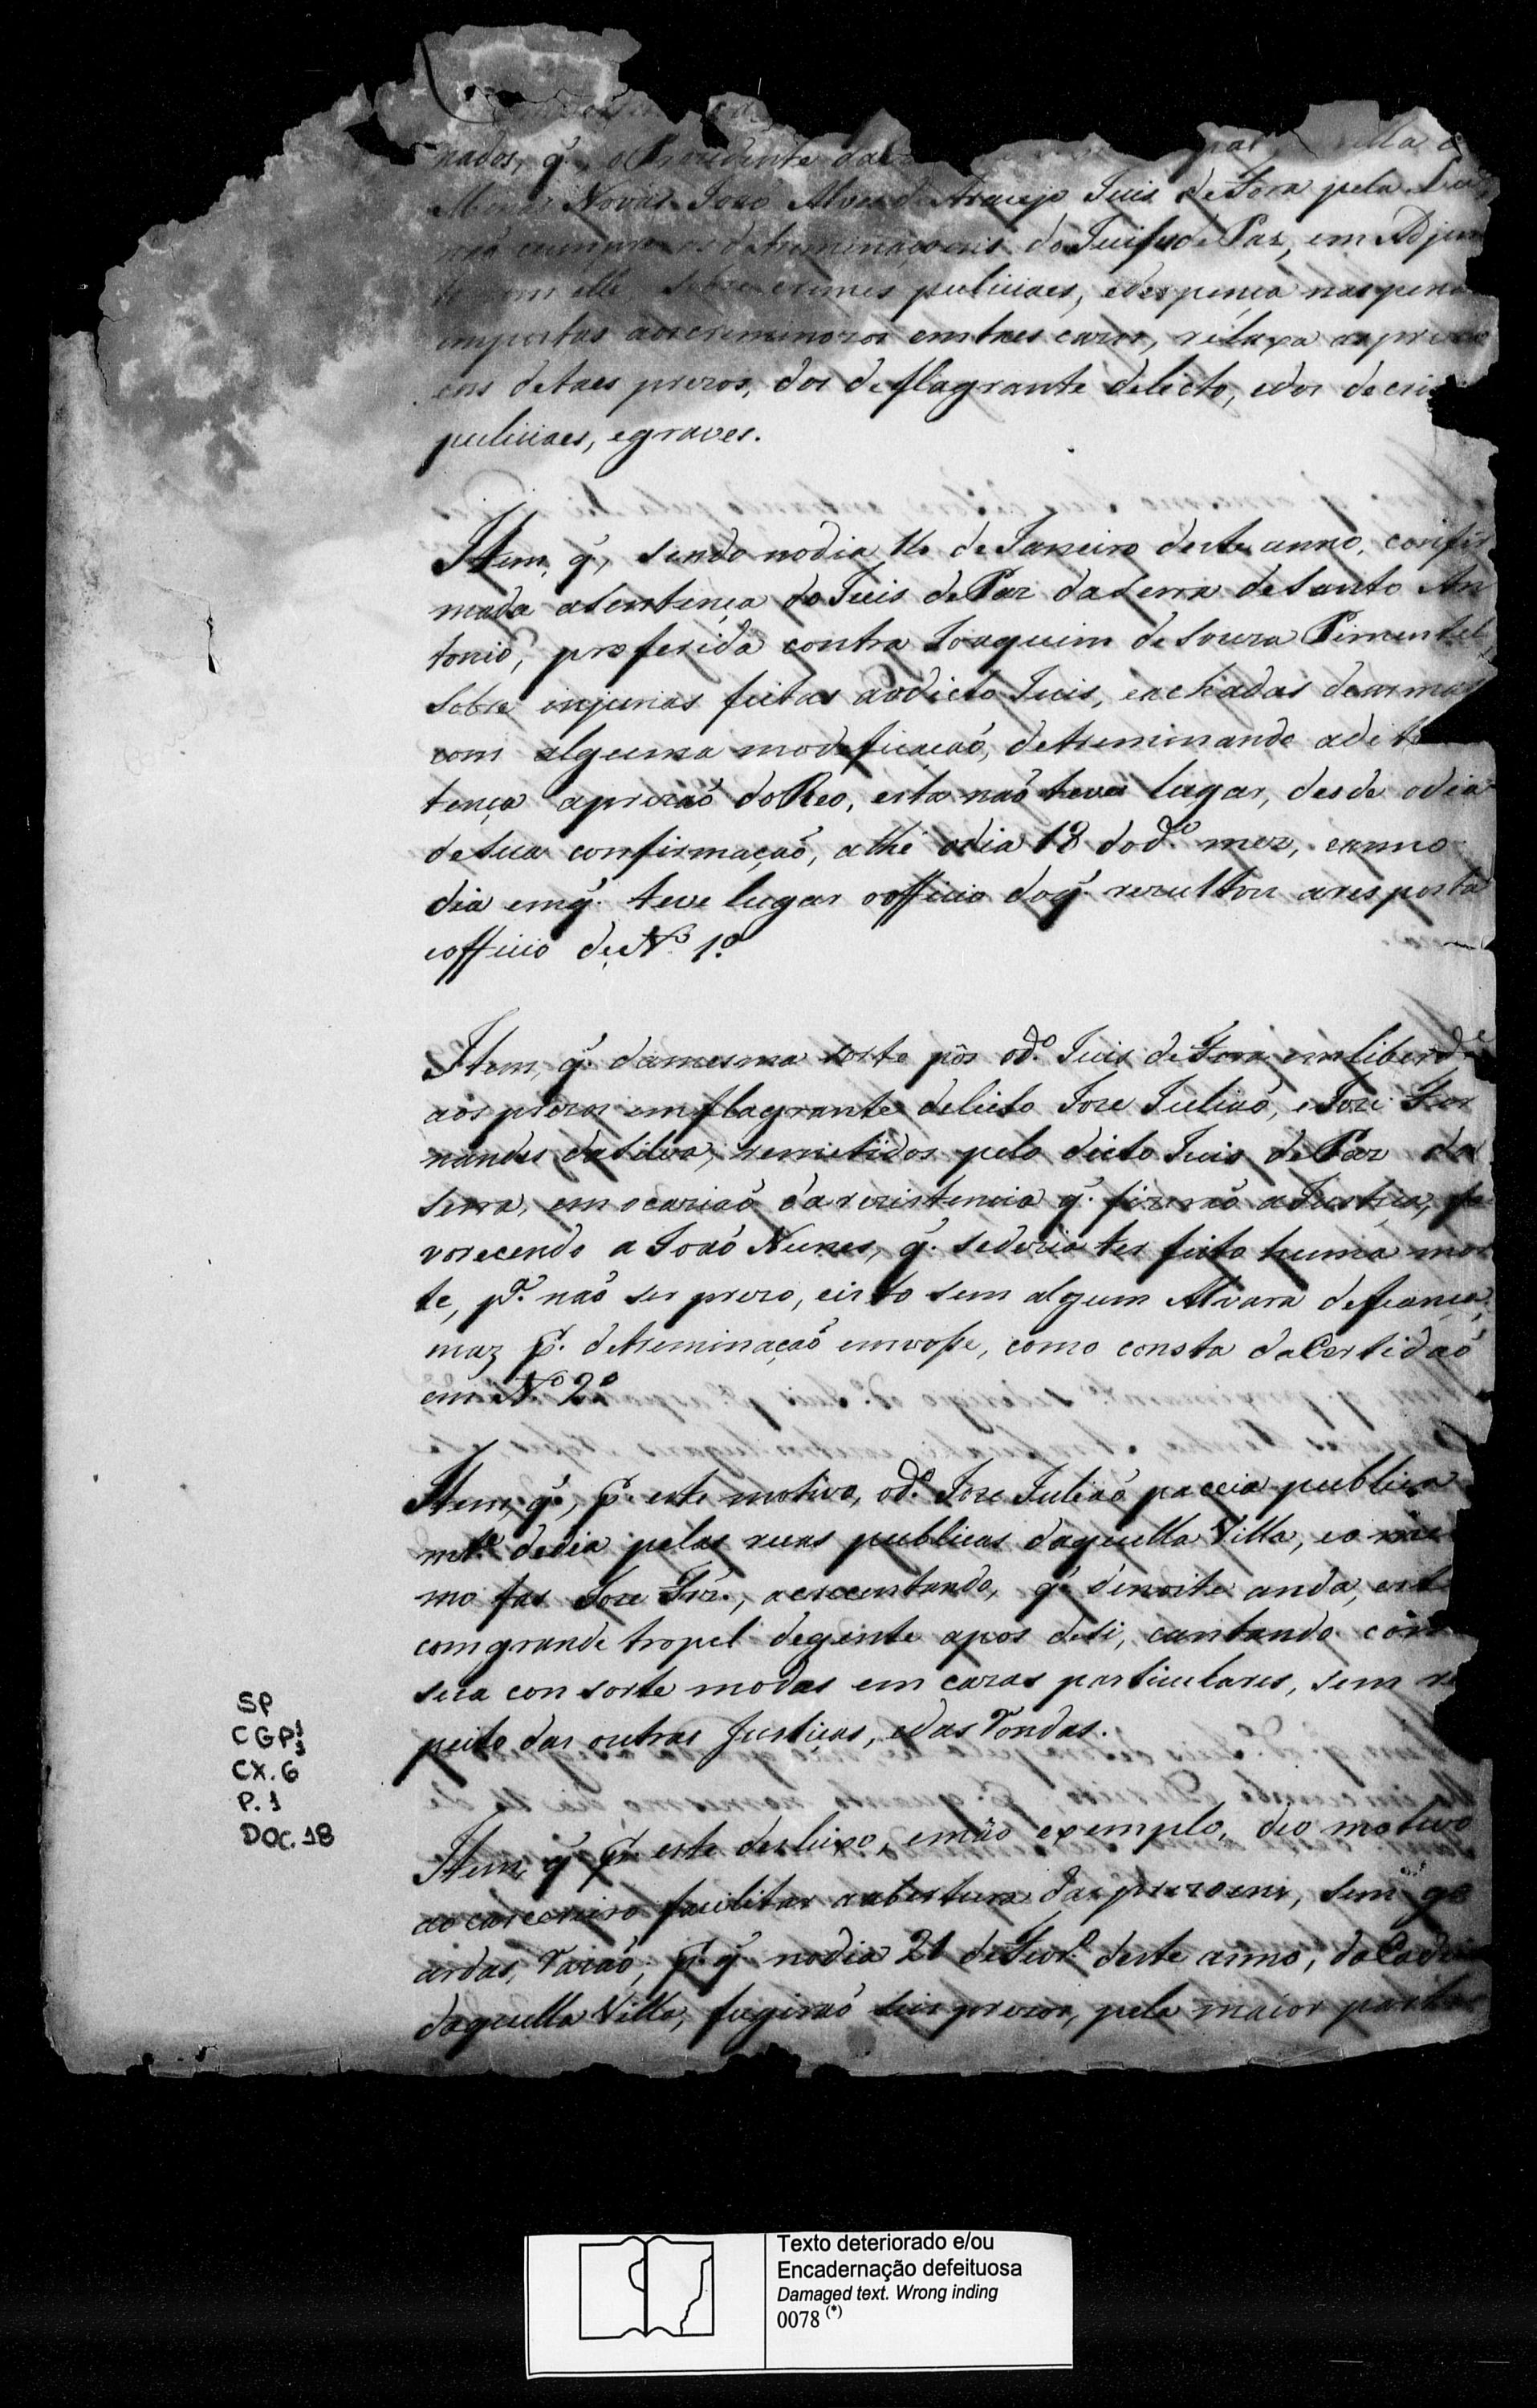 nados, q.', o Prezidente da
Minas Novas João Alves de Araujo Juis de Fora pela Lei,
não cumpre as detreminaçoens do Juiso de Paz, em Adjun
to com elle sobre crimes puliciaes, edespença naspenas
impostas aoscriminozos emtaes cazos, relaxa asprizo
ens detaes prezos, dos deflagrante delicto, edos decri
puliciaes, egraves.
Item, q.', sendo nodia 16 deJaneiro deste anno, confir
mada asentença do Juis dePaz daSerra deSanto An
tonio, proferida contra Joaquim deSouza Pimentel,
sobre injurias feitas aodicto Juis, eachadas dearmas
com alguma modeficação, detreminando adita
tença aprizaõ doReo, esta naõ teve lugar, desde odia
desua confirmaçaõ, athé odia 18 dod.º mez, eanno
dia emq.' teve lugar oofficio doq.' rezultou aresposta
eofficio de N.º 1.º
Item, q.' damesma sorte pôs od.º Juis deFora emliberd.e
aosprezos emflagrante delicto Joze Juliaõ, eJoze Fer
nandes daSilva, remetidos pelo dicto Juis dePaz da
Serra, em ocaziaõ darezistencia q.' fizeraõ aJustiça, fa
vorecendo a Joaõ Nunes, q.' sedezia ter feito huma mor
te, p.a naõ ser prezo, eisto sem algum Alvara defiança,
maz p.r detreminaçaõ emvoße, como consta daCertidaõ
em N.º 2.º
Item, q.', p.r este motivo, od.º Joze Juliaõ paceia publica
mt.e dedia pelas ruas publicas daquella Villa, eo mes
mo fas Joze Frz., acrecentando, q.' denoite anda, este
comgrande tropel degente apos desi, cantando com
sua consorte modas em cazas particulares, sem res
peito das outras Justiças, edas Rondas.
Item, q.' p.r este desleixo, emáo exemplo, deo motivo
ao carcereiro facilitar aabertura das prezoens, sem go
ardas, razaõ, p.r q.' nodia 21 deFever.º deste anno, daCadeia
daquella Villa, fugiraõ seis prezos, pela maior parte
SP
CGP1
CX.6
P.1
DOC.18
Texto deteriorado e/ou
Encadernação defeituosa
Damaged text. Wrong inding
0078 (*)